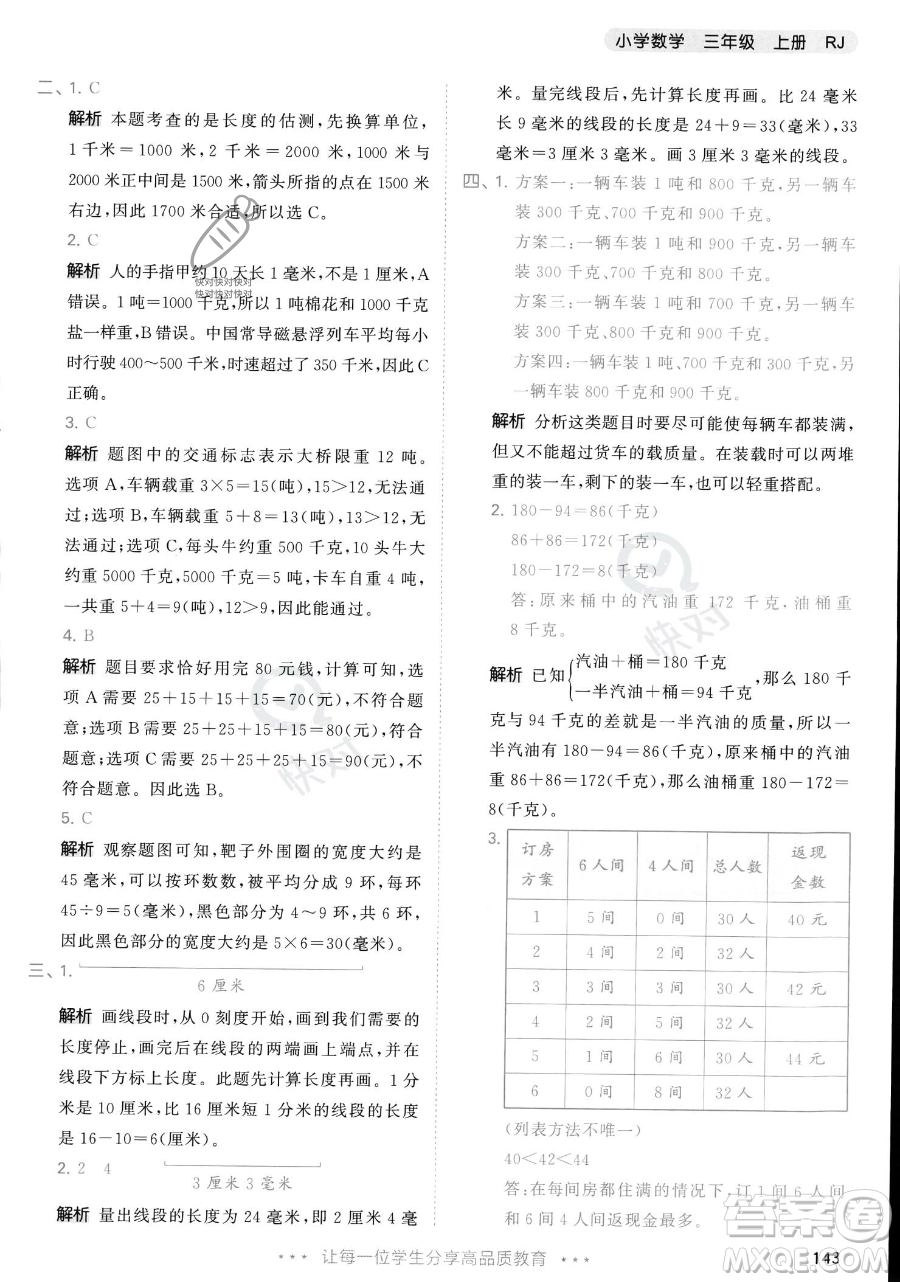 小学数学 三年级 上册 RJ
二、1. C
解析 本题考查的是长度的估测,先换算单位,
1千米=1000米,2千米=2000米,1000米与
2000米正中间是1500米,箭头所指的点在1500米
右边,因此1700米合适,所以选C。
2. C
解析 人的手指甲约10天长1毫米,不是1厘米,A
错误。1吨=1000千克,所以1吨棉花和1000千克
盐一样重,B错误。中国常导磁悬浮列车平均每小
时行驶400~500千米,时速超过了350千米,因此C
正确。
3. C
解析 题图中的交通标志表示大桥限重12吨。
选项A,车辆载重3×5=15(吨),15>12,无法通
过;选项B,车辆载重5+8=13(吨),13>12,
无法通过;选项C,每头牛约重500千克,10头牛大
约重5000千克,5000千克=5吨,卡车自重4吨,
一共重5+4=9(吨),12>9,因此能通过。
4. B
解析 题目要求恰好用完80元钱,计算可知,选
项A需要25+15+15+15=70(元),不符合题
意;选项B需要25+25+15+15=80(元),符合
题意;选项C需要25+25+25+15=90(元),不
符合题意。因此选B。
5. C
解析 观察题图可知,靶子外围圈的宽度大约是
45毫米,可以按环数数,被平均分成9环,每环
45÷9=5(毫米),黑色部分的宽度,共6环,
因此黑色部分的宽度大约是5×6=30(毫米)。
三、1.
6厘米
解析 画线段时,从0刻度开始,画到我们需要的
长度停止,画完后在线段的两端画上端点,并在
线段下方标上长度。此题先计算长度再画。1分
米是10厘米,比16厘米短1分米的线段的长度
是16-10=6(厘米)。
2. 2 4
3厘米3毫米
解析 量出线段的长度为24毫米,即2厘米4毫
米。量完线段后,先计算长度再画。比24毫米
长9毫米的线段的长度是24+9=33(毫米),33
毫米=3厘米3毫米。画3厘米3毫米的线段。
四、1. 方案一:一辆车装1吨和800千克,另一辆车
装300千克、700千克和900千克。
方案二:一辆车装1吨和900千克,另一辆车
装300千克、700千克和800千克。
方案三:一辆车装1吨和700千克,另一辆车
装300千克、800千克和900千克。
方案四:一辆车装1吨、700千克和300千克,
另一辆车装800千克和900千克。
解析 分析这类题目时要尽可能使每辆车都装满,
但又不能超过货车的载质量。在装载时可以两堆
重的装一车,剩下的装一车,也可以轻重搭配。
2. 180-94=86(千克)
86+86=172(千克)
180-172=8(千克)
答:原来桶中的汽油重172千克,油桶重
8千克。
解析 已知{汽油+桶=180千克
一半汽油+桶=94千克,那么180千
克与94千克的差就是一半汽油的质量,所以一
半汽油重180-94=86(千克),原来桶中的汽油
重86+86=172(千克),那么油桶重180-172=
8(千克)。
3.
订房方案 6人间 4人间 总人数 返现金数
1 5间 0间 30人 40元
2 4间 2间 32人
3 3间 3间 30人 42元
4 2间 5间 32人
5 1间 6间 30人 44元
6 0间 8间 32人
(列表方法不唯一)
40<42<44
答:在每间房都住满的情况下,订1间6人
间和6间4人间返现金最多。
让每一位学生分享高品质教育
143
快对快对快对
快对快对快对
快对
快对
作业精灵
MXQE.COM